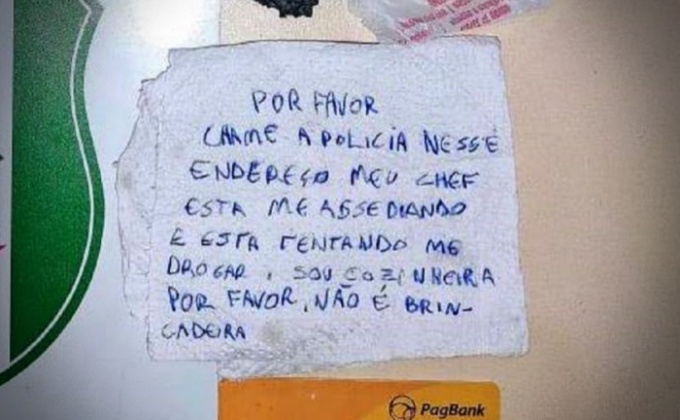 POR FAVOR
CHAME A POLICIA NESSE
ENDEREÇO MEU CHEF
ESTA ME ASSEDIANDO
E ESTA TENTANDO ME
DROGAR, SOU COZINHEIRA
POR FAVOR, NÃO É BRIN-
CADEIRA
PagBank